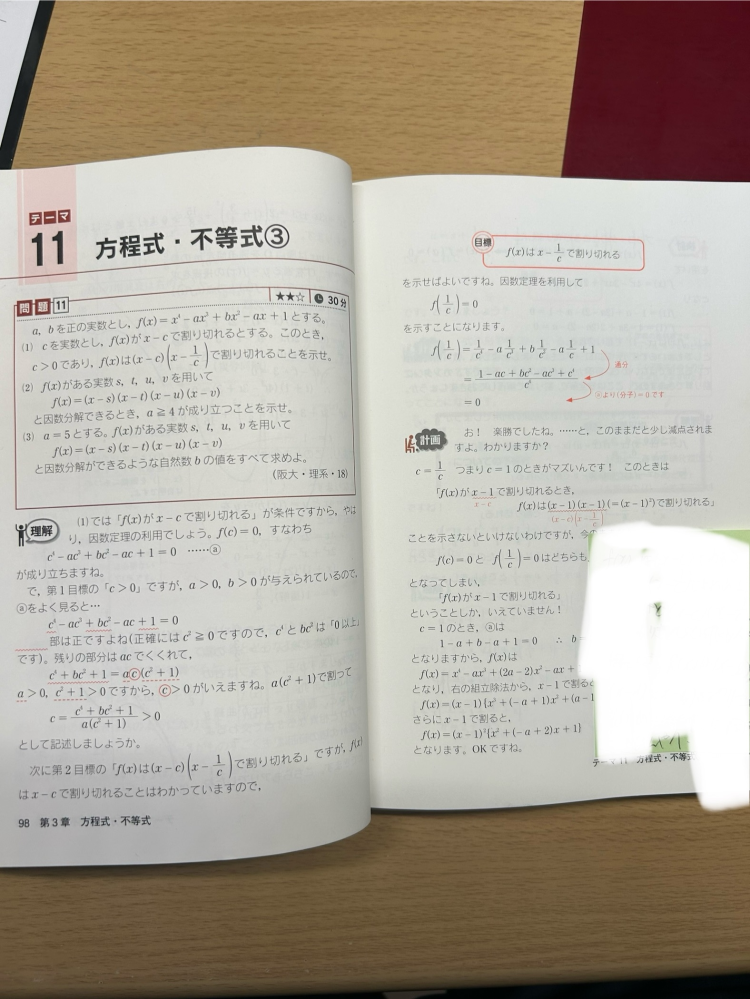 テーマ
11 方程式・不等式③
問題 11 ★★☆ 30分
a, bを正の実数とし, f(x)=x⁴-ax³+bx²-ax+1とする。
(1) cを実数とし, f(x)がx-cで割り切れるとする。このとき,
c>0であり, f(x)は(x-c)(x-1/c)で割り切れることを示せ。
(2) f(x)がある実数s, t, u, vを用いて
f(x)=(x-s)(x-t)(x-u)(x-v)
と因数分解できるとき, a≧4が成り立つことを示せ。
(3) a=5とする。f(x)がある実数s, t, u, vを用いて
f(x)=(x-s)(x-t)(x-u)(x-v)
と因数分解ができるような自然数bの値をすべて求めよ。
(阪大・理系・18)
理解 (1)では「f(x)がx-cで割り切れる」が条件ですから, やは
り, 因数定理の利用でしょう。f(c)=0, すなわち
c⁴-ac³+bc²-ac+1=0 ……ⓐ
が成り立ちますね。
で, 第1目標の「c>0」ですが, a>0, b>0が与えられているので,
ⓐをよく見ると…
c⁴-ac³+bc²-ac+1=0
部は正ですよね(正確にはc²≧0ですので, c⁴とbc²は「0以上」
です)。残りの部分はacでくくれて,
c⁴+bc²+1=ac(c²+1)
a>0, c²+1>0ですから, c>0がいえますね。a(c²+1)で割って
c=(c⁴+bc²+1)/(a(c²+1))>0
として記述しましょうか。
次に第2目標の「f(x)は(x-c)(x-1/c)で割り切れる」ですが, f(x)
はx-cで割り切れることはわかっていますので,
98 第3章 方程式・不等式
目標 f(x)はx-1/cで割り切れる
を示せばよいですね。因数定理を利用して
f(1/c)=0
を示すことになります。
f(1/c)=1/c⁴-a1/c³+b1/c²-a1/c+1
通分
=(1-ac+bc²-ac³+c⁴)/c⁴
ⓐより(分子)=0です
=0
計画 お! 楽勝でしたね。……と, このままだと少し減点されま
すよ。わかりますか?
c=1/c つまりc=1のときがマズいんです! このときは
「f(x)がx-1で割り切れるとき,
x-c
f(x)は(x-1)(x-1)(=(x-1)²)で割り切れる」
(x-c)(x-1/c)
ことを示さないといけないわけですが, 今の
f(c)=0と f(1/c)=0はどちらも,
となってしまい,
「f(x)がx-1で割り切れる」
ということしか, いえていません!
c=1のとき, ⓐは
1-a+b-a+1=0 ∴ b
となりますから, f(x)は
f(x)=x⁴-ax³+(2a-2)x²-ax+
となり, 右の組立除法から, x-1で割ると
f(x)=(x-1){x³+(-a+1)x²+(a-1
さらにx-1で割ると,
f(x)=(x-1)²{x²+(-a+2)x+1}
となります。OKですね。
テーマ11 方程式・不等式